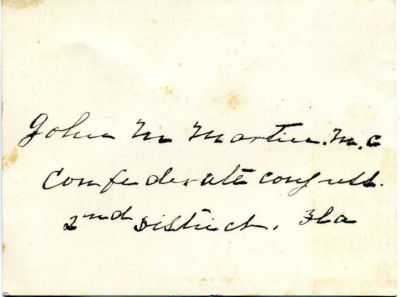 John M Martin. M.C
Confederate congress.
2nd District, Fla